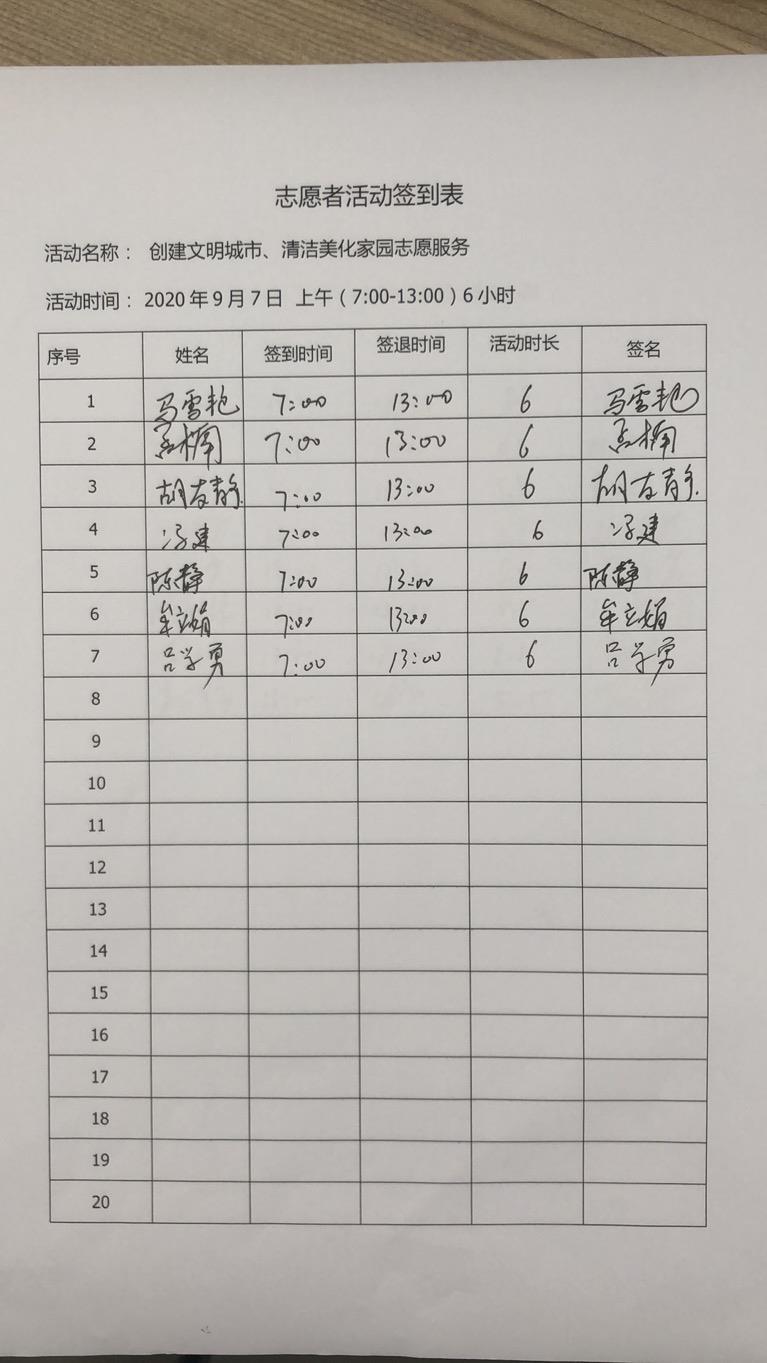 志愿者活动签到表
活动名称： 创建文明城市、清洁美化家园志愿服务
活动时间：2020年9月7日 上午（7:00-13:00）6小时
序号 姓名 签到时间 签退时间 活动时长 签名
1 马雪艳 7:00 13:00 6 马雪艳
2 7:00 13:00 6
3 胡友静 7:00 13:00 6 胡友静
4 冯建 7:00 13:00 6 冯建
5 陈静 7:00 13:00 6 陈静
6 牟立娟 7:00 13:00 6 牟立娟
7 吕学勇 7:00 13:00 6 吕学勇
8
9
10
11
12
13
14
15
16
17
18
19
20